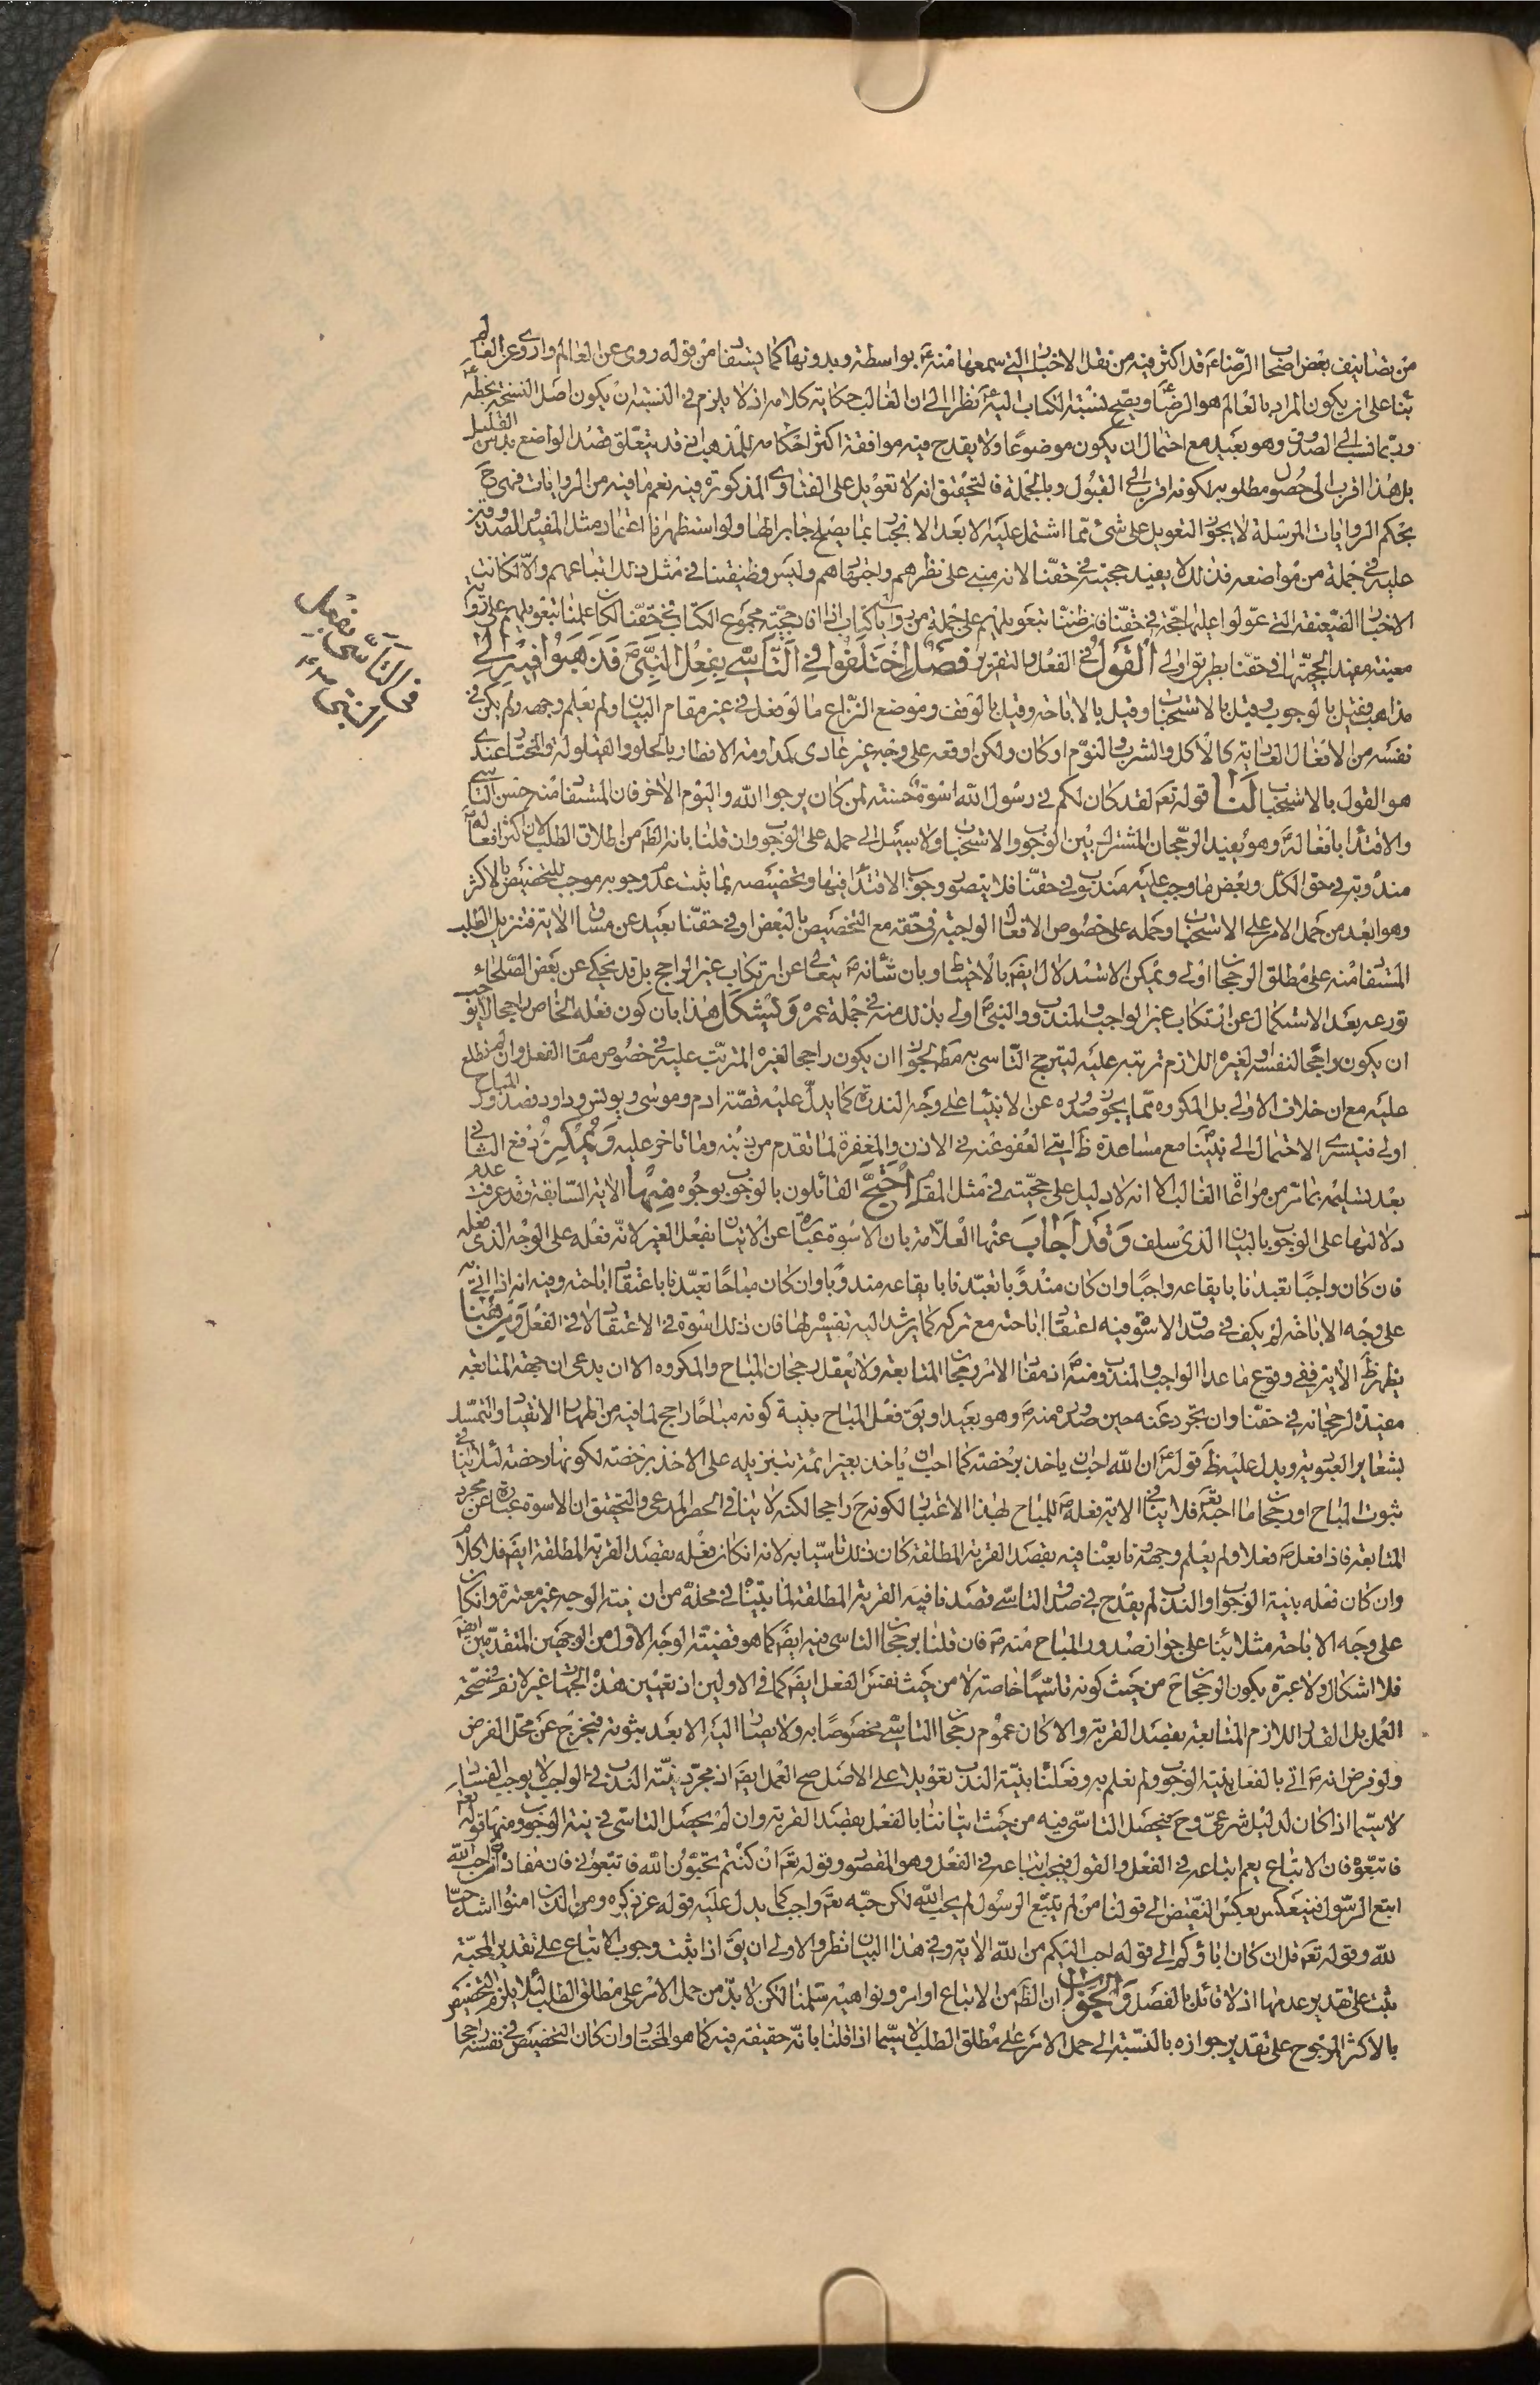 من تصانيف بعض اصحاب الرّضاء ع قد اكثر فيه من نقل الاخبار التي سمعها منه ع بواسطة وبدونها كما يستفاد من قوله روى عن العالم واروى عن العالم
بناء على ان يكون المراد بالعالم هو الرضا ع ويصح نسبة الكتاب اليه ع نظرا الى ان الغالب حكاية كلامه اذ لا يلزم في النسبة ان يكون اصل النسخة بخطه ع
وربما نسب الى الصدوق وهو بعيد مع احتمال ان يكون موضوعًا ولا يقدح فيه موافقة اكثر احكامه للمذهب اذ قد يتعلق قصد الواضع بدس القليل
بل هذا اقرب الى حصول مطلوبه لكونه اقرب الى القبول وبالجملة فالتحقيق انه لا تعويل على الفتاوى المذكورة فيه نعم ما فيه من الروايات فهي ح
بحكم الروايات المرسلة لا يجوز التعويل على شئ مما اشتمل عليه الا بعد الانجبار بما يصلح جابرا لها ولو استظهرنا اعتماد مثل المفيد والصدوقين
عليه في جملة من مواضعه فذلك لا يفيد حجيته في حقنا لانه مبنى على نظرهم واجتهادهم وليس وظيفتنا في مثل ذلك اتباعهم والا لكانت
الاخبار الضعيفة التي عوّلوا عليها حجّة في حقنا فان ظننا بتعويلهم على جملة من روايات كتاب اذا افاد حجيّة مجموع الكتاب في حقنا لكان علمنا بتعويلهم على رواية
معينة مفيد الحجيتها في حقنا بطريق اولى القول في الفعل والتقرير فصل اختلفوا في التأسي بفعل النبي ص فذهبوا فيه الى
مذاهب فقيل بالوجوب وقيل بالاستحباب وقيل بالاباحة وقيل بالوقف وموضع النزاع ما لو فعل في غير مقام البيان ولم نعلم وجهه ولم يكن في
نفسه من الافعال العادية كالاكل والشرب والنوم او كان ولكن اوقعه على وجه غير عادى كمداومة الافطار بالحلو والقيلولة والمختار عندى
هو القول بالاستحباب لنا قوله تعم لقد كان لكم في رسول الله اسوة حسنة لمن كان يرجوا الله واليوم الاخر فان المستفاد منه حسن التأسي
والاقتداء بافعاله ص وهو يفيد الرجحان المشترك بين الوجوب والاستحباب ولا سبيل الى حمله على الوجوب وان قلنا بانه الظم من اطلاق الطلب لان اكثر افعاله ص
مندوبة في حق الكل وبعض ما وجب عليه مندوب في حقنا فلا يتصور وجوب الاقتداء فيها وتخصيصه بما ثبت عدم وجوبه موجب للتخصيص بالاكثر
وهو ابعد من حمل الامر على الاستحباب وحمله على خصوص الافعال الواجبة في حقه مع التخصيص بالبعض او في حقنا بعيد عن مساق الاية فتنزيل الطلب
المستفاد منه على مطلق الرجحان اولى ويمكن الاستدلال ايضم بالاحتياط وبان شأنه ص يتعالى عن ارتكاب غير الراجح بل قد يحكى عن بعض الصلحاء
تورعه بعد الاستكمال عن ارتكاب غير الواجب والمندوب والنبي ص اولى بذلك منه في جملة عمره ويشكل هذا بان كون فعله الخاص راجحا لا يوجب
ان يكون راجحًا لنفسه او لغيره اللازم ترتبه عليه ليترجح التأسي به مط لجواز ان يكون راجحا لغيره المترتب عليه في خصوص مقام الفعل وان لم نطلع
عليه مع ان خلاف الاولى بل المكروه مما يجوز صدوره عن الانبياء على وجه الندرة كما يدل عليه قصة ادم وموسى ويونس وداود فصدور المباح
اولى فيتسرى الاحتمال الى نبينا ص مع مساعدة ظ ايتى العفو عنه في الاذن والمغفرة لما تقدم من ذنبه وما تاخر عليه ويمكن دفع الثاني
بعد تسليمه بما مر من مراعاة الغالب الا انه لا دليل على حجيته في مثل المقام احتج القائلون بالوجوب بوجوه منها الاية السابقة وقد عرفت عدم
دلالتها على الوجوب بالبيان الذى سلف وقد اجاب عنها العلامة بان الاسوة عبارة عن الاتيان بفعل الغير لانه فعله على الوجه الذى فعله
فان كان واجبًا تعبدنا بايقاعه واجبًا وان كان مندوبًا تعبدنا بايقاعه مندوبًا وان كان مباحًا تعبدنا باعتقاد اباحته وفيه انه اذا اتى به
على وجه الاباحة لم يكف في صدق الاسوة فيه اعتقاد اباحته مع تركه كما يرشد اليه تفسيره لها فان ذلك اسوة في الاعتقاد لا في الفعل ومن هنا
يظهر ظ الاية نفي وقوع ما عدا الواجب والمندوب منه ص اذ مفاد الامر رجحان المتابعة ولا يعقل رجحان المباح والمكروه الا ان يدعى ان جهة المتابعة
مفيدة لرجحانه في حقنا وان تجرد عنه حين صدوره منه ص وهو بعيد او يق فعل المباح بنية كونه مباحًا راجح لما فيه من اظهار الانقياد والتمسك
بشعاير العبودية ويدل عليه ظ قوله ع ان الله احب ان ياخذ برخصه كما احب ان ياخذ بعزائمه بتنزيله على الاخذ برخصه لكونها رخصه لئلا ينافي
ثبوت المباح او رجحان ما احبه تعم فلا ينافي الاية فعله ص للمباح لهذا الاعتبار لكونه ح راجحا لكنه لا ينافي الحصر المدعى والتحقيق ان الاسوة عبارة عن مجرد
المتابعة فاذا فعل ص فعلا ولم يعلم وجهه وتابعنا فيه بقصد القربة المطلقة كان ذلك تاسيا به لانه ان كان فعله بقصد القربة المطلقة ايضم فلا كلام
وان كان فعله بنية الوجوب او الندب لم يقدح في صدق التاسي قصدنا فيه القربة المطلقة لما بيناه في محله من ان نية الوجه غير معتبرة وان كان
على وجه الاباحة مثلا بناء على جواز صدور المباح منه ص فان قلنا برجحان التاسي فيه ايضم كما هو قضية الوجه الاول من الوجهين المتقدمين ايضم
فلا اشكال ولا عبرة بكون الرجحان ح من حيث كونه تاسيًا خاصة لا من حيث نفس الفعل ايضم كما في الاولين اذ تعيين هذه الجهات غير لازم في صحة
العمل بل القدر اللازم المتابعة بقصد القربة والا كان عموم رجحان التاسي مخصوصًا به ولا يصار اليه الا بعد ثبوته فيخرج عن محل الفرض
ولو فرض انه ص اتى بالفعل بنية الوجوب ولم نعلم به وفعلنا بنية الندب تعويلا على الاصل صح العمل ايضم اذ مجرد نية الندب في الواجب لا يوجب الفساد
لا سيما اذا كان لدليل شرعي وح فيحصل التاسي فيه من حيث اتياننا بالفعل بقصد القربة وان لم يحصل التاسي في نية الوجوب ومنها قوله تعم
فاتبعوه فان الاتباع يعم اتباعه في الفعل والقول فيجب اتباعه في الفعل وهو المقصود وقوله تعم ان كنتم تحبون الله فاتبعوني فان مفاده من احب الله
اتبع الرسول فينعكس بعكس النقيض الى قولنا من لم يتبع الرسول لم يحب الله لكن حبه تعم واجب كما يدل عليه قوله عز ذكره ومن الذين امنوا اشد حبا
لله وقوله تعم قل ان كان اباؤكم الى قوله احب اليكم من الله الاية وفي هذا البيان نظر والاولى ان يق اذا ثبت وجوب الاتباع على تقدير المحبة
يثبت على تقدير عدمها اذ لا قائل بالفصل والجواب ان الظم من الاتباع اتباع اوامره ونواهيه سلمنا لكن لا بد من حمل الامر على مطلق الطلب لئلا يلزم التخصيص
بالاكثر المرجوح على تقدير جوازه بالنسبة الى حمل الامر على مطلق الطلب لا سيما اذا قلنا بانه حقيقة فيه كما هو المختار وان كان التخصيص في نفسه راجحا
في التاسي بفعل
النبي ص